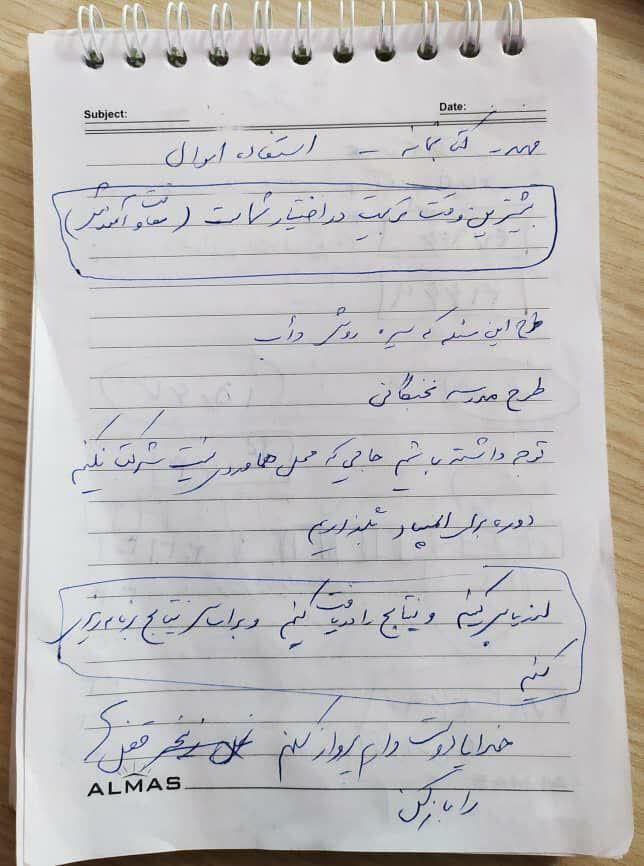 Subject:
Date:
مهد - کتابخانه - استفاده اموال
بیشترین وقت تربیت در اختیار شماست (معاونت آموزش)
طرح این سنله که سیره روش دأب
طرح مدرسه نخبگانی
توجه داشته باشیم جایی که محل هماوردی نیست شرکت نکنیم
دوره برای المپیاد بگذاریم
ارزیابی کنیم و نتایج را دریافت کنیم و بر اساس نتایج برنامه‌ریزی
کنیم
خدایا دوست دارم پرواز کنم قفل
را باز کن
ALMAS